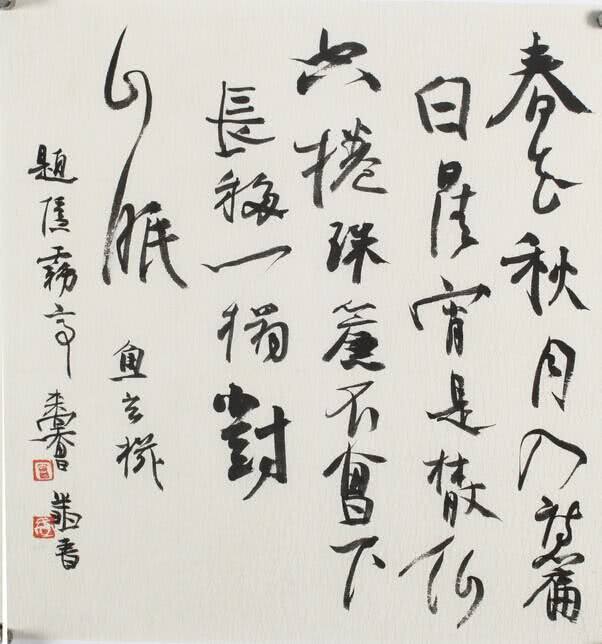 春花秋月入詩篇
白日清宵是散仙
空捲珠簾不曾下
長移一榻對
山眠 魚玄機
題隱霧亭 書